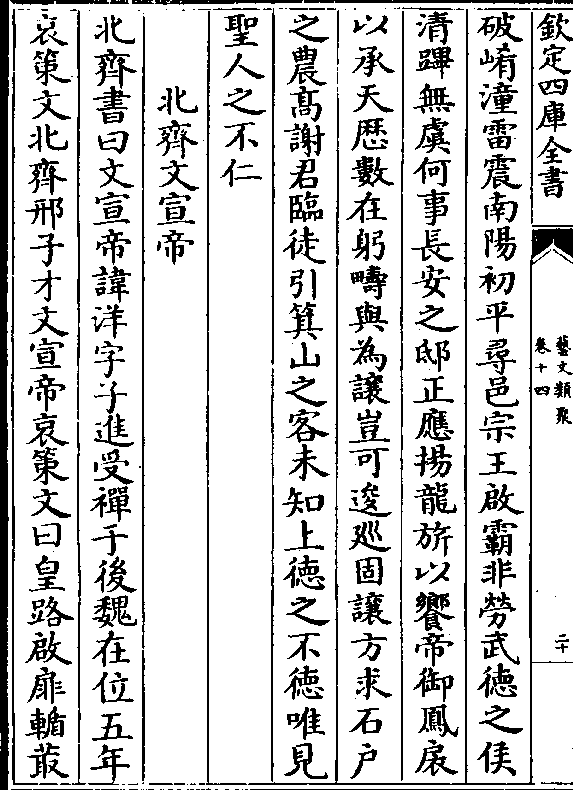 欽定四庫全書
藝文類聚
卷十四
二十
破崤潼雷震南陽初平尋邑宗王啟霸非勞武德之侯
清蹕無虞何事長安之邸正應揚龍旂以饗帝御鳳扆
以承天歴數在躬疇與為讓豈可逡廵固讓方求石户
之農髙謝君臨徒引箕山之客未知上徳之不徳唯見
聖人之不仁
北齊文宣帝
北齊書曰文宣帝諱洋字子進受禪于後魏在位五年
哀策文北齊邢子才文宣帝哀策文曰皇路啟扉輴菆